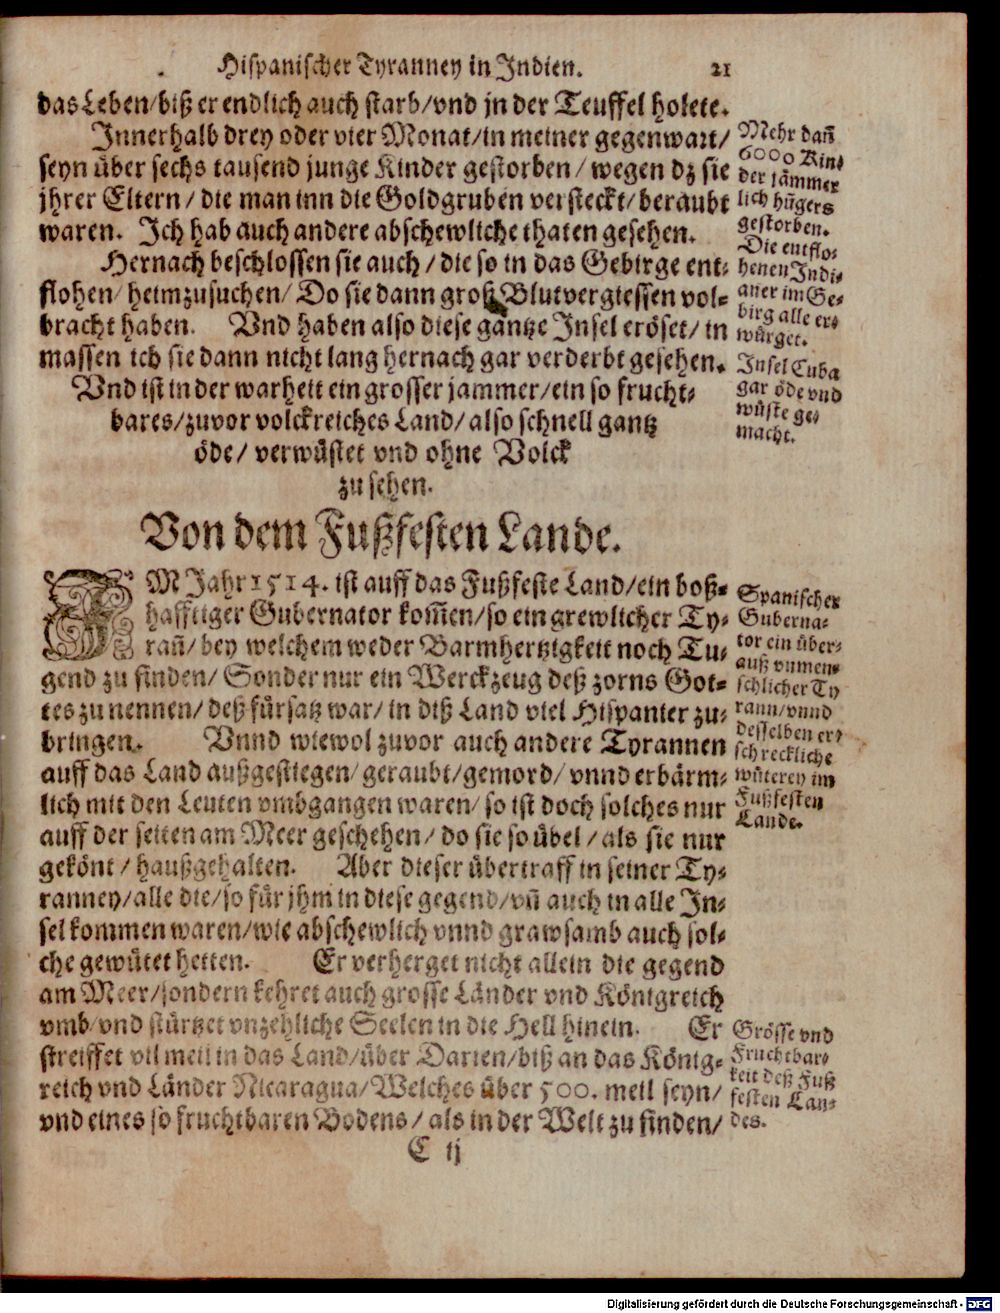 Hispanischer Tyranney in Indien. 21
das Leben/biß er endlich auch starb/vnd jn der Teuffel holete.
Innerhalb drey oder vier Monat/in meiner gegenwart/
seyn über sechs tausend junge Kinder gestorben/ wegen dz sie
jhrer Eltern/ die man inn die Goldgruben versteckt/ beraubt
waren. Ich hab auch andere abschewliche thaten gesehen.
Hernach beschlossen sie auch/ die so in das Gebirge ent⸗
flohen/ heimzusuchen/ Do sie dann groß Blutvergiessen vol⸗
bracht haben. Vnd haben also diese gantze Insel eröset/ in
massen ich sie dann nicht lang hernach gar verderbt gesehen.
Vnd ist in der warheit ein grosser jammer/ein so frucht⸗
bares/zuvor volckreiches Land/ also schnell gantz
öde/ verwüstet vnd ohne Volck
zu sehen.
Mehr dañ
6000 Kin⸗
der jämmer
lich hũgers
gestorben.
Die entflo⸗
henen Indi⸗
aner im Ge⸗
birg alle er⸗
würget.
Insel Cuba
gar öde vnd
wüste ge⸗
macht.
Von dem Fußfesten Lande.
IM Jahr 1514. ist auff das Fußfeste Land/ein boß⸗
hafftiger Gubernator kom̃en/so ein grewlicher Ty⸗
rañ/ bey welchem weder Barmhertzigkeit noch Tu⸗
gend zu finden/ Sonder nur ein Werckzeug deß zorns Got⸗
tes zu nennen/ deß fürsatz war/ in diß Land viel Hispanier zu⸗
bringen. Vnnd wiewol zuvor auch andere Tyrannen
auff das Land außgestiegen/ geraubt/gemord/ vnnd erbärm⸗
lich mit den Leuten vmbgangen waren/ so ist doch solches nur
auff der seiten am Meer geschehen/ do sie so übel/ als sie nur
gekönt/ haußgehalten. Aber dieser übertraff in seiner Ty⸗
ranney/alle die/so für jhm in diese gegend/vñ auch in alle In⸗
sel kommen waren/wie abschewlich vnnd grawsamb auch sol⸗
che gewütet hetten. Er verherget nicht allein die gegend
am Meer/sondern kehret auch grosse Länder vnd Königreich
vmb/vnd stürtzet vnzehliche Seelen in die Hell hinein. Er
streiffet vil meil in das Land/über Darien/biß an das König⸗
reich vnd Länder Nicaragua/Welches über 500. meil seyn/
vnd eines so fruchtbaren Bodens/ als in der Welt zu finden/
Spanischer
Guberna⸗
tor ein über⸗
auß vnmen⸗
schlicher Ty
rann/vnnd
desselben er⸗
schreckliche
wüterey im
Fußfesten
Lande.
Grösse vnd
Fruchtbar⸗
keit deß Fuß
festen Lan⸗
des.
C ij
Digitalisierung gefördert durch die Deutsche Forschungsgemeinschaft - DFG